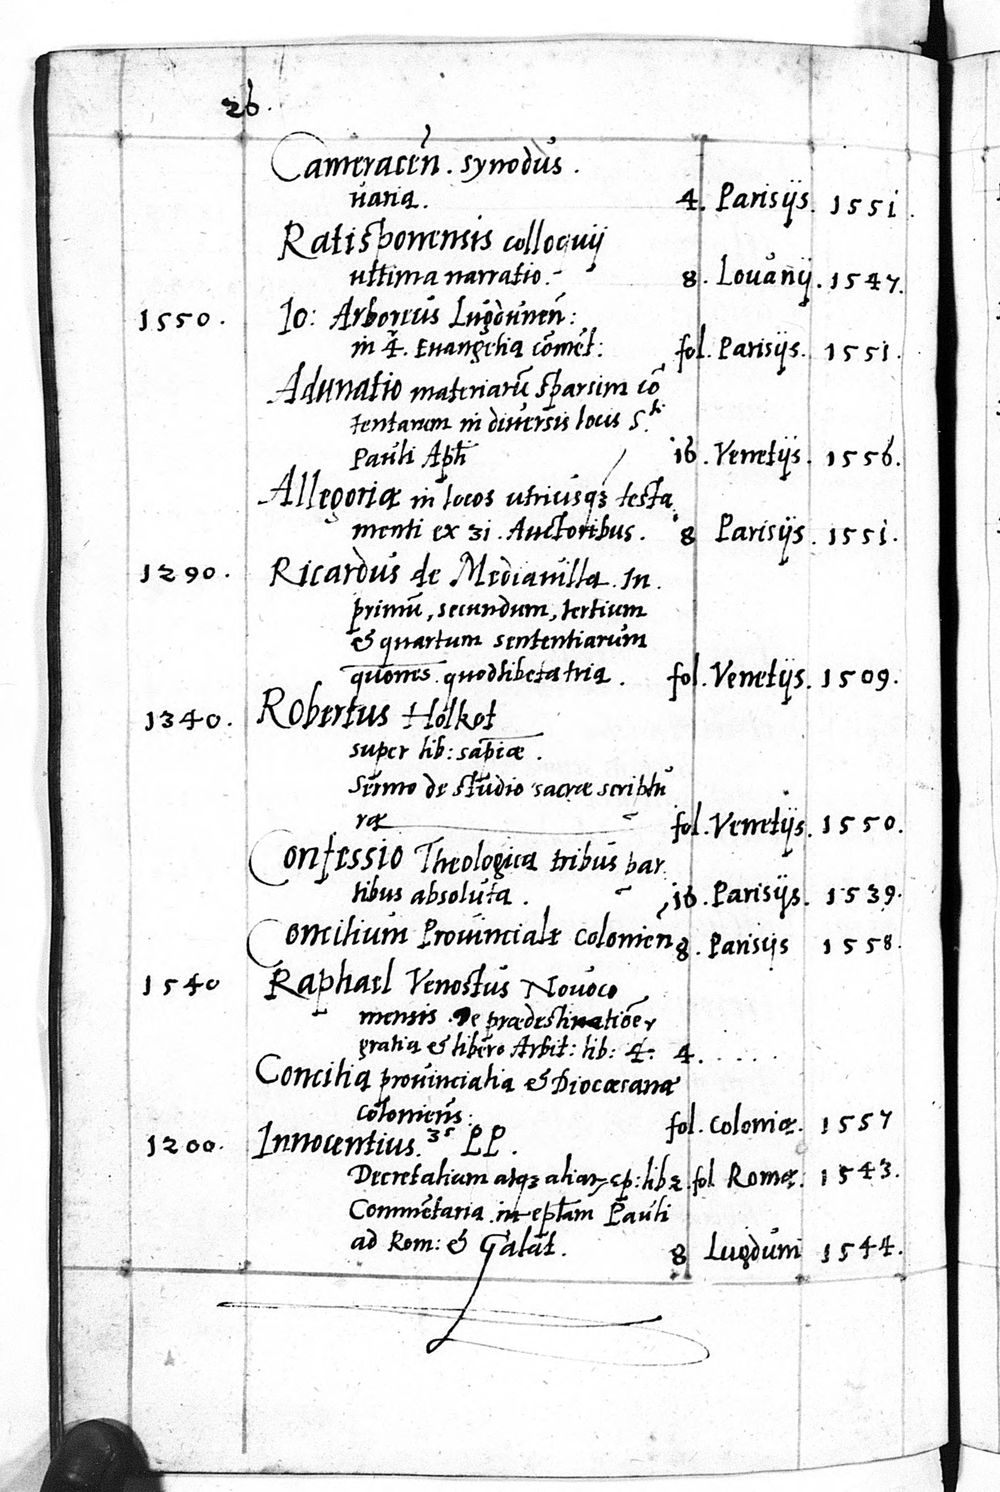 26.
Cameracen̄. synodus.
varia. 4. Parisijs. 1551.
Ratisponensis colloquij
ultima narratio.- 8. Lovanij. 1547.
1550. Io: Arboreus Lugdunen̄:
in 4. Evangelia com̄et: fol. Parisijs. 1551.
Adunatio materiarū sparsim cō
tentarum in diversis locis S.ti
Pauli Apli 16. Venetijs. 1556.
Allegoriæ in locos utriusqꝫ testa
menti ex 31. Auctoribus. 8 Parisijs. 1551.
1290. Ricardus de Mediavilla. In.
primū, secundum, tertium
& quartum sententiarum
quōnes. quodlibeta tria. fol. Venetijs. 1509.
1340. Robertus Holkot
super lib: sapiæ.
Sermo de studio sacræ scriptu
ræ fol. Venetijs. 1550.
Confessio Theologica tribus par
tibus absoluta. 16. Parisijs. 1539.
Concilium Provinciale Colonien̄ 8. Parisijs 1558.
1540 Raphael Venostus Novoco
mensis. De prædestinatiōe,
gratia & libero Arbit: lib: 4. 4. . . . .
Concilia provincialia & Diocæsanæ
coloniens: fol. coloniæ. 1557
1200. Innocentius. 3s PP.
Decretalium atqꝫ aliaꝝ ep: lib 2. fol Romæ. 1543.
Commētaria in eplam Pauli
ad Rom: & Galat. 8 Lugduni 1544.